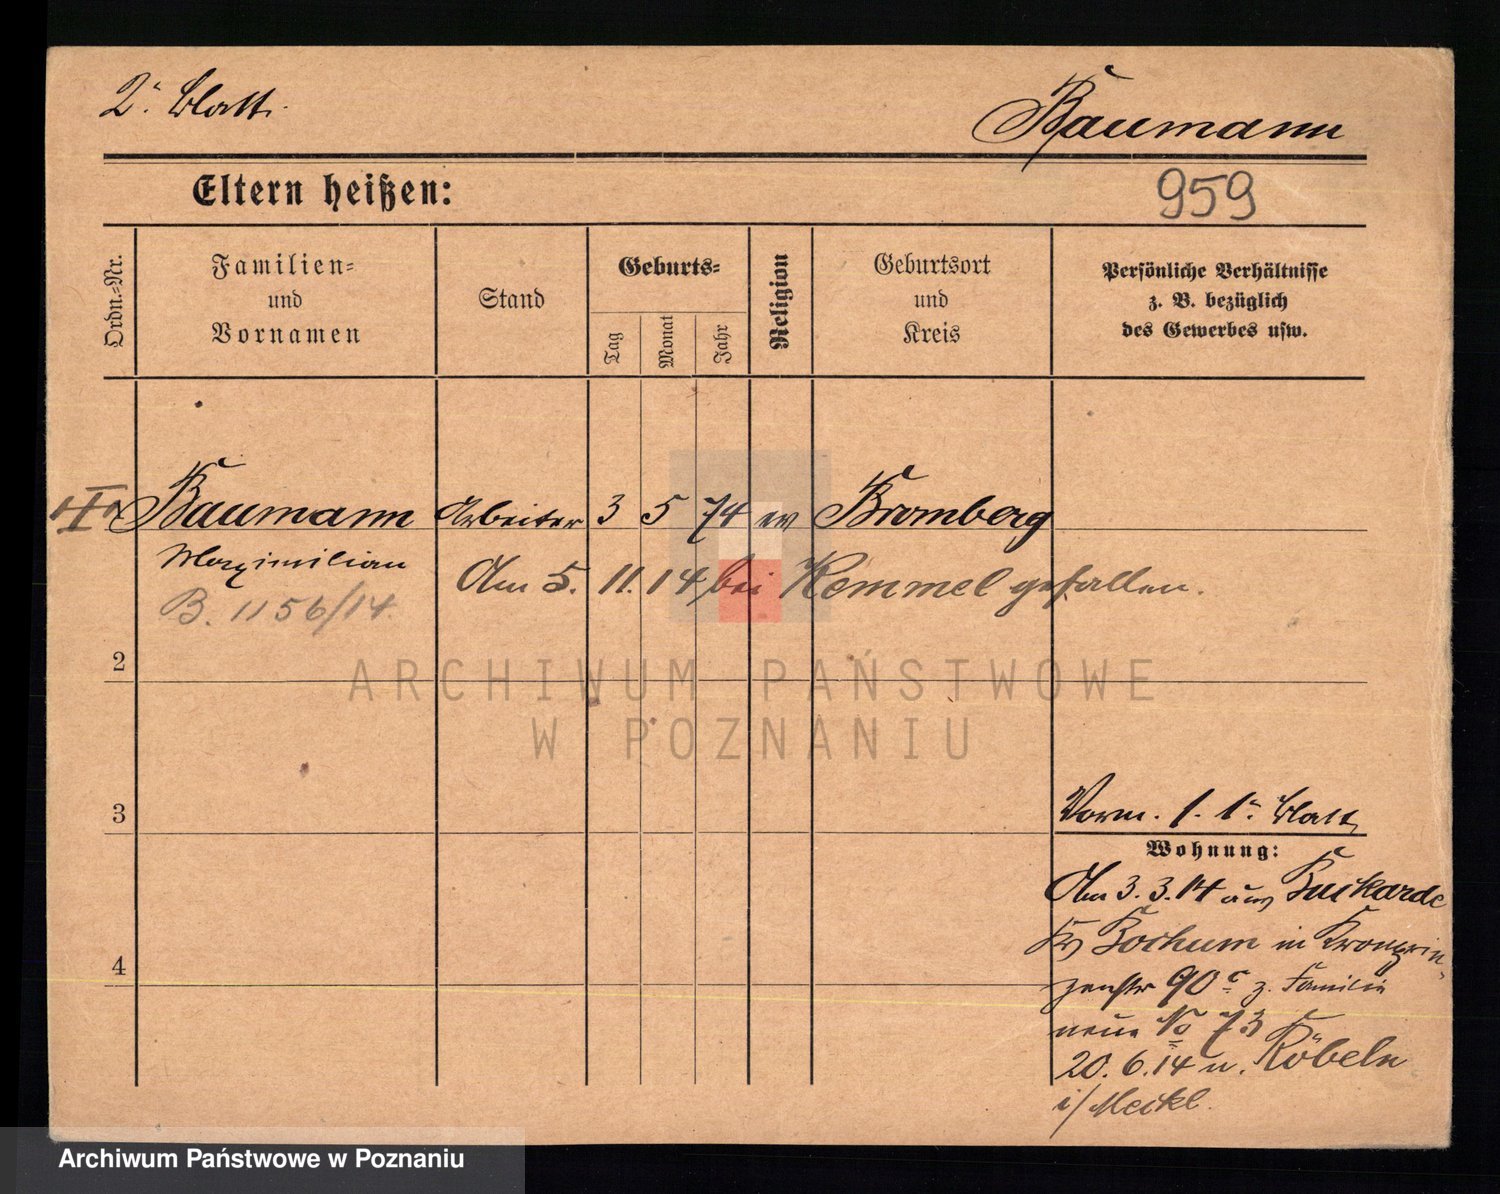 2. Blatt.
Baumann
Eltern heißen:
959
Ordn.-Nr.
Familien-
und
Vornamen
Stand
Geburts-
Tag
Monat
Jahr
Religion
Geburtsort
und
Kreis
Persönliche Verhältnisse
z. B. bezüglich
des Gewerbes usw.
Baumann Arbeiter 3 5 74 ev Bromberg
Maximilian
Am 5. 11. 14 bei Kemmel gefallen.
B. 1156/14.
2
ARCHIWUM PAŃSTWOWE
W POZNANIU
3
Vorm. s. 1. Blatt
Wohnung:
Am 3. 3. 14 aus Huckarde
Bochum in Kronprin-
4
zenstr 90c z. Familie
neue No 73
20. 6. 14 n. Röbeln
i/Meckl.
Archiwum Państwowe w Poznaniu